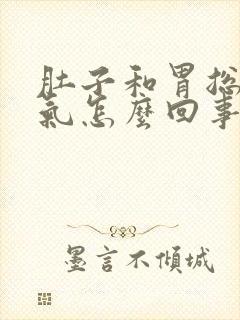 肚子和胃总
氣怎麼回事
墨言不傾城